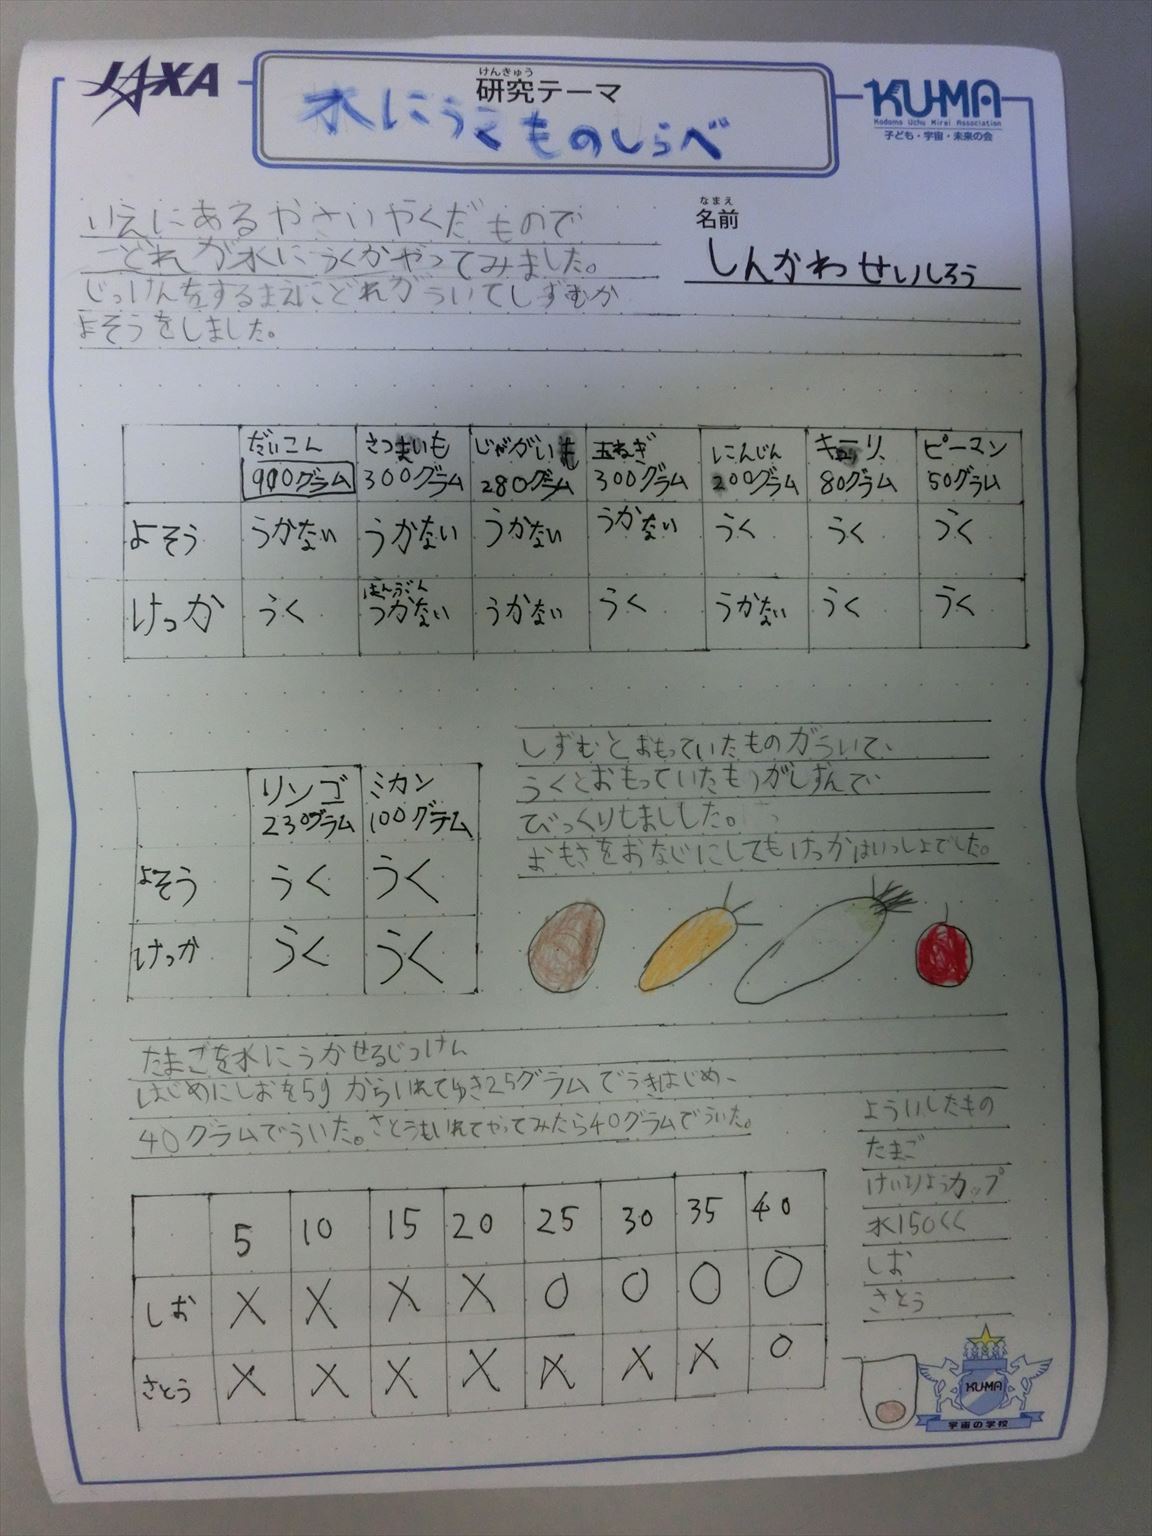 JAXA
けんきゅう
研究テーマ
水にうくものしらべ
KU-MA
Kodomo Uchu Mirai Association
子ども・宇宙・未来の会
いえにあるやさいやくだもので
どれが水にうくかやってみました。
じっけんをするまえにどれがういてしずむか
よそうをしました。
なまえ
名前
しんかわせいしろう
だいこん さつまいも じゃがいも 玉ねぎ にんじん キュウリ ピーマン
900グラム 300グラム 280グラム 300グラム 200グラム 80グラム 50グラム
よそう うかない うかない うかない うかない うく うく うく
はんぶん
けっか うく うかない うかない うく うかない うく うく
リンゴ ミカン
230グラム 100グラム
よそう うく うく
けっか うく うく
しずむとおもっていたものがういて、
うくとおもっていたものがしずんで、
びっくりしましした。
おもさをおなじにしてもけっかはいっしょでした。
たまごを水にうかせるじっけん
はじめにしおを5gからいれてゆき25グラムでうきはじめ、
40グラムでういた。さとうもいれてやってみたら40グラムでういた。
5 10 15 20 25 30 35 40
しお X X X X O O O O
さとう X X X X X X X O
よういしたもの
たまご
けいりょうカップ
水150cc
しお
さとう
KU-MA
宇宙の学校